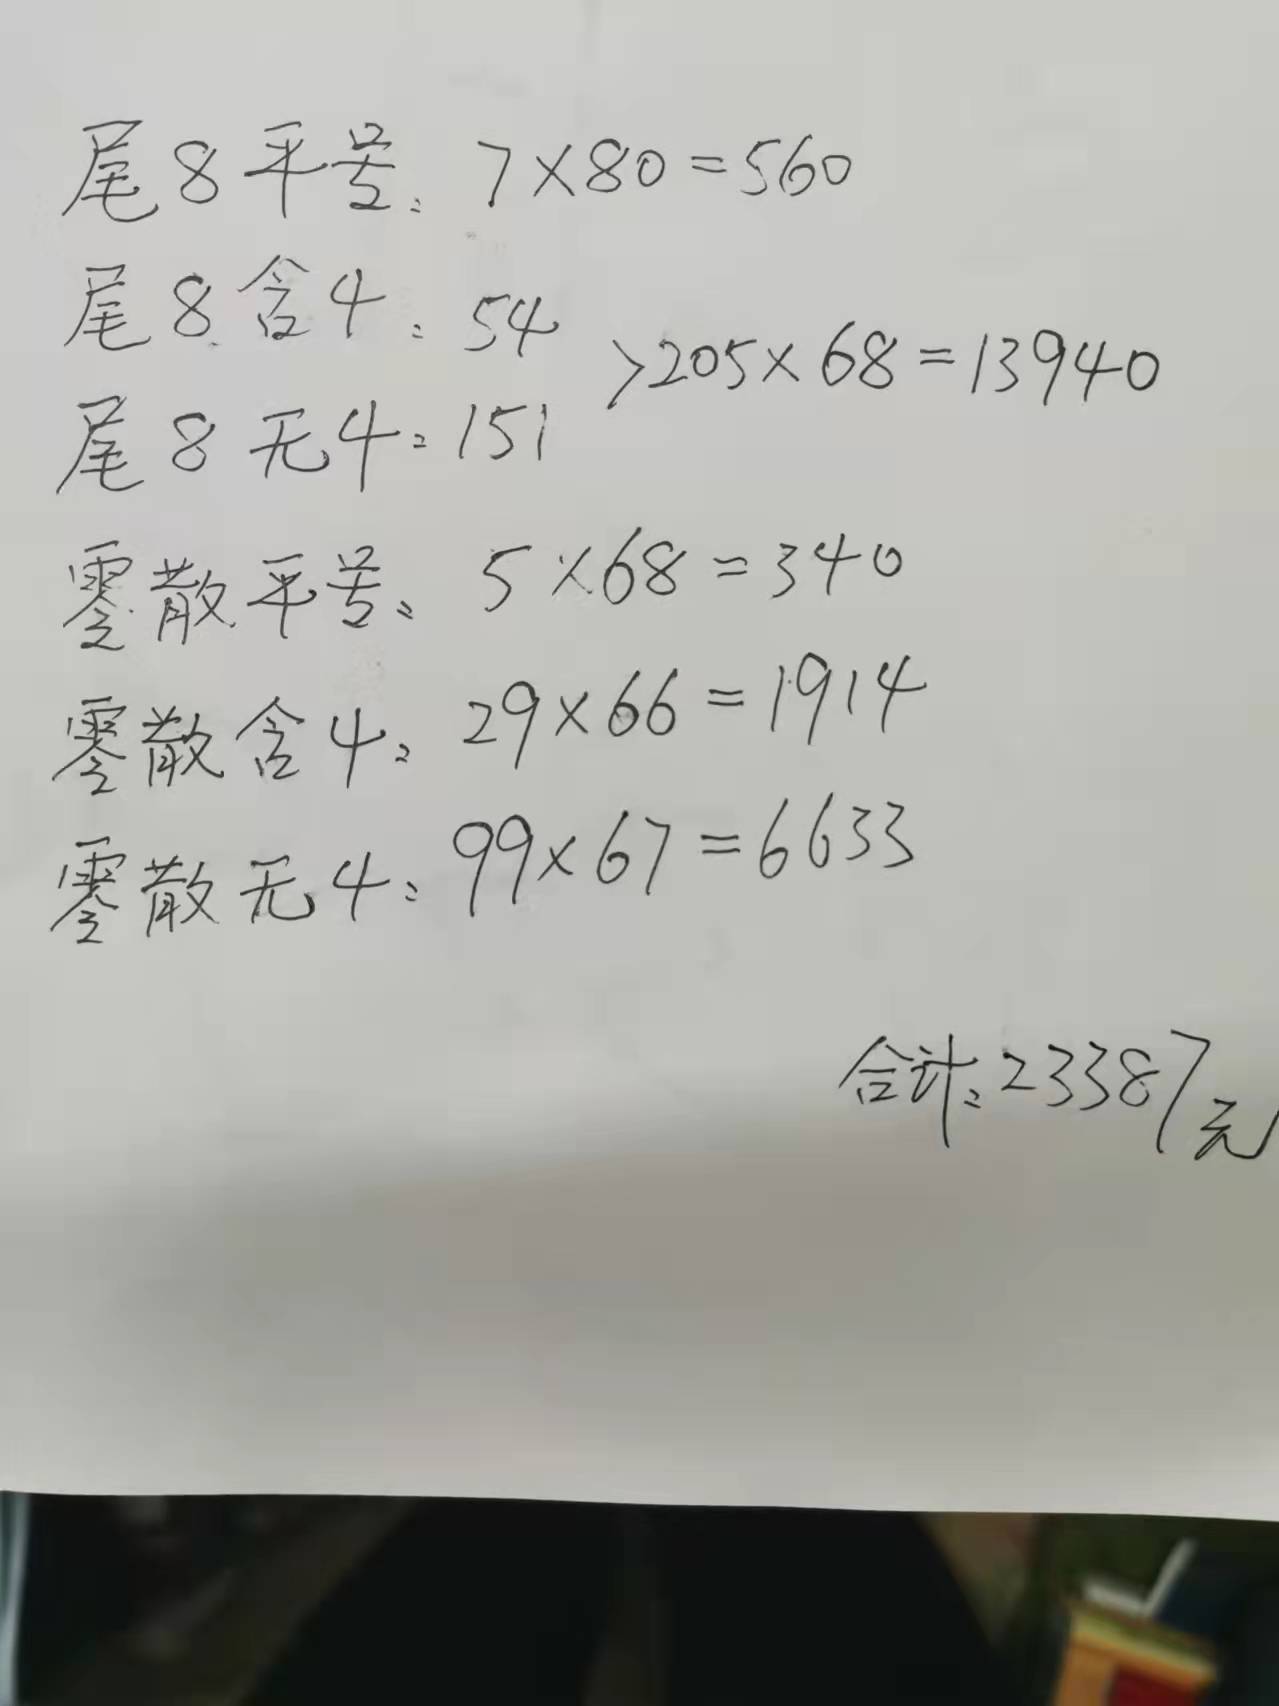 尾8平号：7×80=560
尾8含4：54
>205×68=13940
尾8无4：151
零散平号：5×68=340
零散含4：29×66=1914
零散无4：99×67=6633
合计：23387元